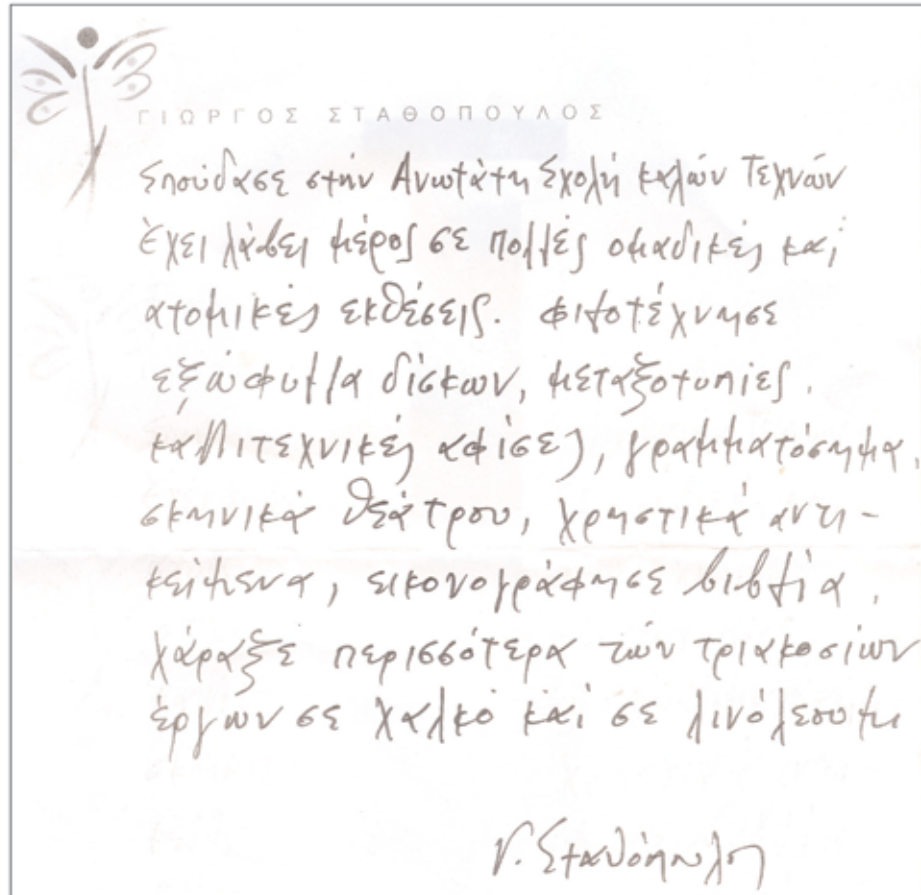 ΓΙΩΡΓΟΣ ΣΤΑΘΟΠΟΥΛΟΣ
Σπούδασε στήν Ανωτάτη Σχολή καλών Τεχνών
Έχει λάβει μέρος σε πολλές ομαδικές και
ατομικές εκθέσεις. Φιλοτέχνησε
εξώφυλλα δίσκων, μεταξοτυπίες,
καλλιτεχνικές αφίσες, γραμματόσημα,
σκηνικά θεάτρου, χρηστικά αντι-
κείμενα, εικονογράφησε βιβλία,
χάραξε περισσότερα τών τριακοσίων
έργων σε χαλκό καί σε λινόλεουμ
Γ. Σταθόπουλος